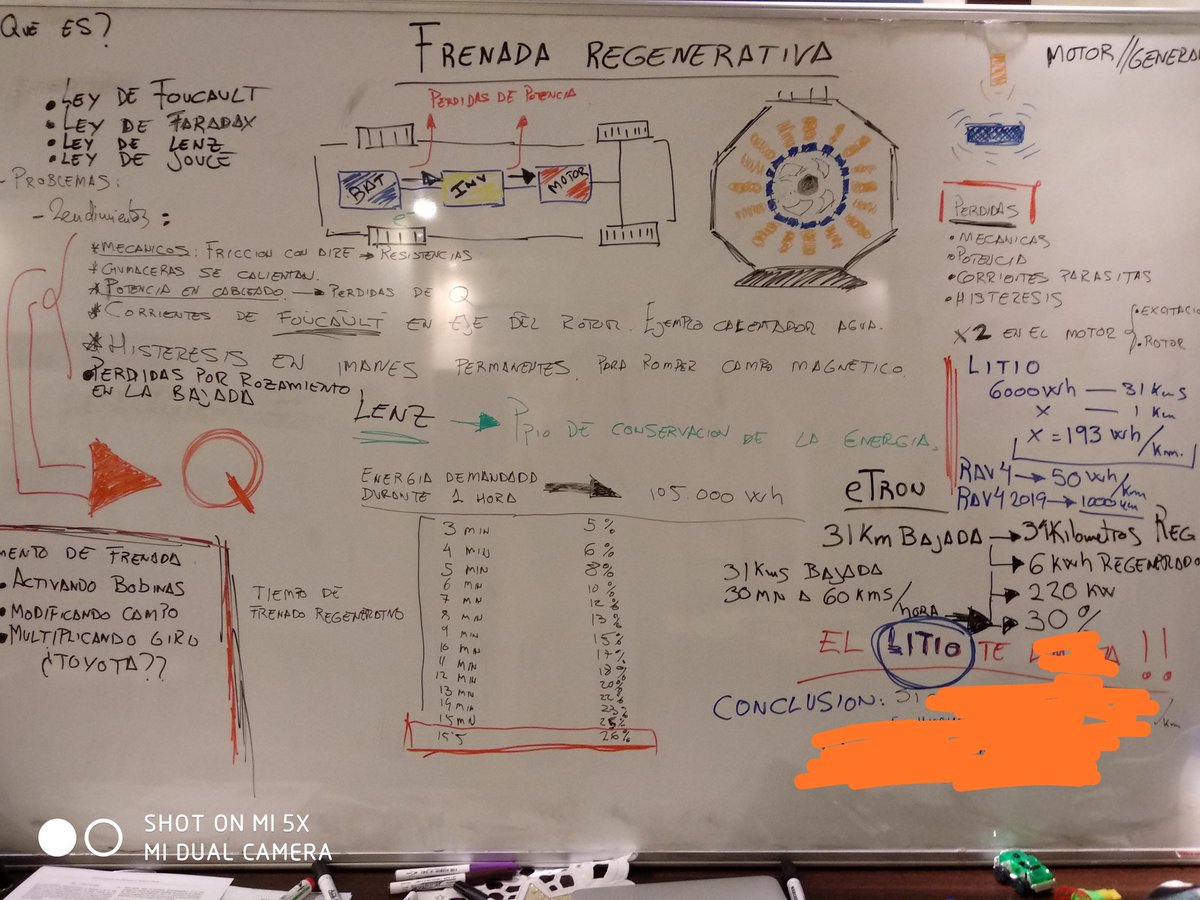 QUE ES?
FRENADA REGENERATIVA
MOTOR//GENERA
• LEY DE FOUCAULT
• LEY DE FARADAX
• LEY DE LENZ
• LEY DE JOUCE
- PROBLEMAS:
- Rendimientos:
PERDIDAS DE POTENCIA
BAT
INV
MOTOR
e-
* MECANICOS: FRICCION CON AIRE → RESISTENCIAS
* CHUMACERAS SE CALIENTAN.
* POTENCIA EN CABLEADO → PERDIDAS DE Q
* CORRIENTES DE FOUCAULT EN EJE DEL ROTOR. EJEMPLO CALENTADOR AGUA.
* HISTERESIS EN IMANES PERMANENTES, PARA ROMPER CAMPO MAGNETICO.
• PERDIDAS POR ROZAMIENTO
EN LA BAJADA
Q
LENZ → Ppio DE CONSERVACION DE LA ENERGIA.
PERDIDAS
• MECANICAS
• POTENCIA
• CORRIENTES PARASITAS
• HISTERESIS
X2 EN EL MOTOR { • EXCITACIO
• ROTOR
LITIO
6000 Wh — 31 Kms
x — 1 Km
x = 193 Wh/Km.
RAV4 → 50 Wh/Km
RAV4 2019 → 1000 Km
MENTO DE FRENADA
• ACTIVANDO BOBINAS
• MODIFICANDO CAMPO
• MULTIPLICANDO GIRO
¿TOYOTA??
ENERGIA DEMANDADA
DURANTE 1 HORA → 105.000 Wh
TIEMPO DE
FRENADO REGENERATIVO
3 MIN 5%
4 MIN 6%
5 MIN 8%
6 MIN 10%
7 MIN 12%
8 MIN 13%
9 MIN 15%
10 MIN 17%
11 MIN 18%
12 MIN 20%
13 MIN 22%
14 MIN 23%
15 MN 25%
15'5 26%
eTRON
31 Km BAJADA → 34 Kilometros REG
→ 6 kwh REGENERADO
→ 220 kw
→ 30%
31 Kms BAJADA
30 MN A 60 KMS/HORA
EL LITIO TE !!
CONCLUSION: 31
SHOT ON MI 5X
MI DUAL CAMERA